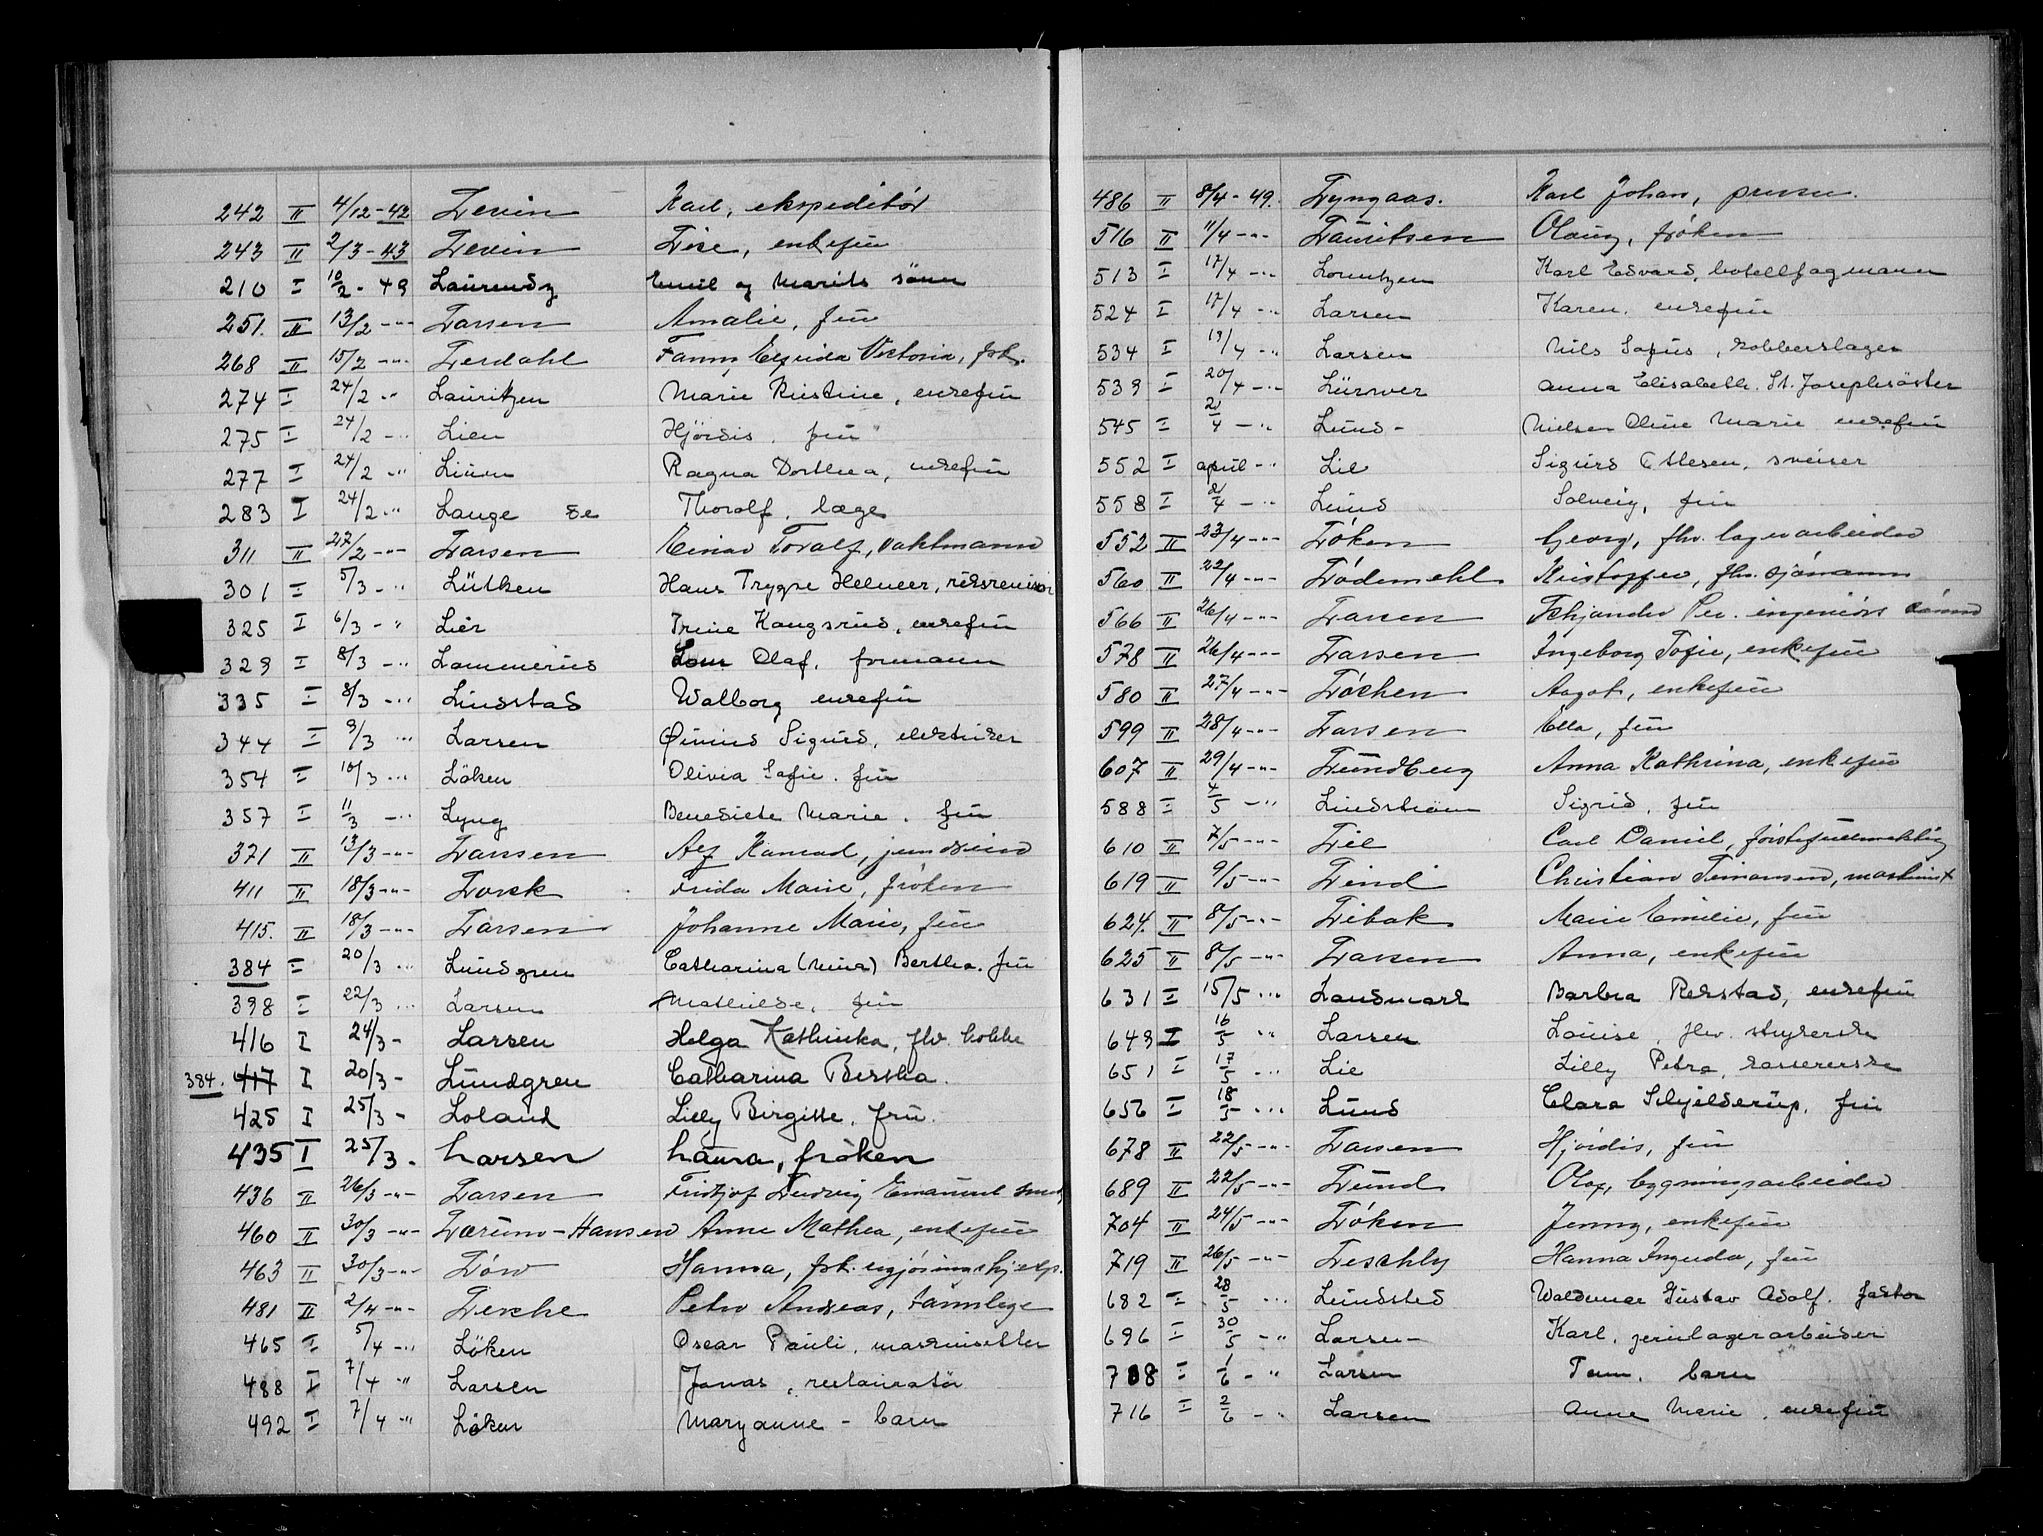 242 II 4/12-42 Levin Karl, ekspeditör
243 II 2/3-43 Levin Lise, enkefru
210 I 10/2-49 Laurendz Emil og Marits sönn
251. II 13/2 -"- Larsen Amalie, fru
268 II 15/2 -"- Lerdahl Fanny Elfrida Victoria, frk.
274 I 24/2 -" Lauritzen Marie Kristine, enkefru
275 I 24/2 -" Lien Hjördis, fru
277 I 24/2 -" Ragna Dorthea, enkefru
283 I 24/2 -" Lange de Thorolf, læge
311 II 27/2 -"- Larsen Einar Toralf, vaktmann
301 I 5/3 -" Lütken Hans Trygve
325 I 6/3 -" Lier Irene Kongsrud, enkefru
329 I 8/3 -" Lammerius Olaf, formann
335 I 8/3 -" Lindstad Walborg enkefru
344 I 9/3 -" Larsen Sigurd, elektriker
354 I 10/3 -" Löken Olivia Sofie, fru
357 I 11/3 -" Lyng Benedicte Marie, fru
371 II 13/3 -"- Larssen Alf Konrad,
411 II 18/3 -"- Lorck Frida Marie, fröken
415. II 18/3 -"- Larsen Johanne Marie, fru
384 I 20/3 -" Lundgren Catharina (Mina) Bertha. fru
398 I 22/3 -" Larsen Mathilde, fru
416 I 24/3 - Larsen Helga Kathinka, fhv.
384. 417 I 20/3 - Lundgren Catharina Bertha.
425 I 25/3 - Loland Lilly Birgitte, fru.
435 I 25/3 - Larsen Laura, fröken
436 II 26/3 -"- Larsen Fridtjof Ludvig Emanuel
460 II 30/3 -"- Lærum-Hansen Anne Mathea, enkefru
463 II 30/3 -"- Löw Hanna, frk. rengjöringshjelp.
481 II 2/4 -"- Lerche Peter Andreas, tannlege
465 I 5/4 -" Löken Oscar Pauli, maskinsetter
488 I 7/4 -" Larsen Jonas, restauratör
492 I 7/4 -" Löken Maryanne - barn
486 II 8/4-49. Lyngaas. Karl Johan,
516 II 11/4 -"- Lauritsen Olaug, fröken
513 I 17/4 -" Lorentzen Karl Edvard, hotellfagmann
524 I 17/4 -" Larsen Karen, enkefru
534 I 19/4 -" Larsen Nils Sofus, kobberslager
539 I 20/4 -" Anna Elisabeth. St. Josephsöster
545 I 21/4 -" Lund - Nielsen Oline Marie enkefru
552 I april -" Lie Sigurd Ottesen, sveiser
558 I 21/4 -" Lund Solveig, fru
552 II 23/4 -"- Löken Georg, fhv. lagerarbeider
560 II 22/4 -"- Lödemehl Kristoffer, fhv. sjömann
566 II 26/4 -"- Larsen Schjander Per. ingeniörs
578 II 26/4 -"- Larsen Ingeborg Sofie, enkefru
580 II 27/4 -"- Löchen Aagot, enkefru
599 II 28/4 -"- Larsen Ella, fru
607 II 29/4 -"- Lundberg Anna Kathrina, enkefru
588 I 4/5 -" Lindström Sigrid, fru
610 II 7/5 -"- Lie Carl Daniel, förstefullmektig
619 II 9/5 -"- Lind Christian Simonsen, maskinist
624. II 8/5 -"- Libak Marie Emilie, fru
625 II 8/5 -"- Larsen Anna, enkefru
631 I 15/5 -" Landmark Barbra Rekstad, enkefru
649 I 16/5 " Larsen Louise, fhv. strykerske
651 I 17/5 -" Lie Lilly Petra, kassererske
656 I 18/5 -" Lund Clara Schjelderup, fru
678 II 22/5 -"- Larsen Hjördis, fru
689 II 22/5 -"- Lund Olaf, bygningsarbeider
704 II 24/5 -"- Löken Jenny, enkefru
719 II 26/5 -"- Leschly Hanna Ingrida, fru
682 I 28/5 -" Lundsted Waldemar Gustav Adolf. faktor
696 I 30/5 -" Larsen - Karl, jernlagerarbeider
708 I 1/6 -" Larsen barn
716 I 2/6 -" Larsen Anne Marie, enkefru